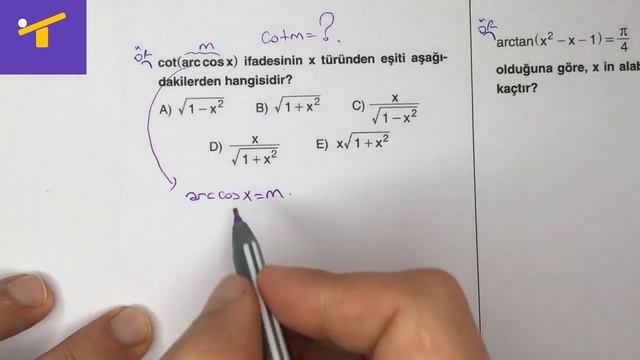 cot m = ?
m
ör
cot(arc cos x) ifadesinin x türünden eşiti aşağı-
dakilerden hangisidir?
A) √(1 – x²) B) √(1 + x²) C) x/√(1 – x²)
D) x/√(1 + x²) E) x√(1 + x²)
arc cos x = m.
ör
arctan(x² – x – 1) = π/4
olduğuna göre, x in
kaçtır?